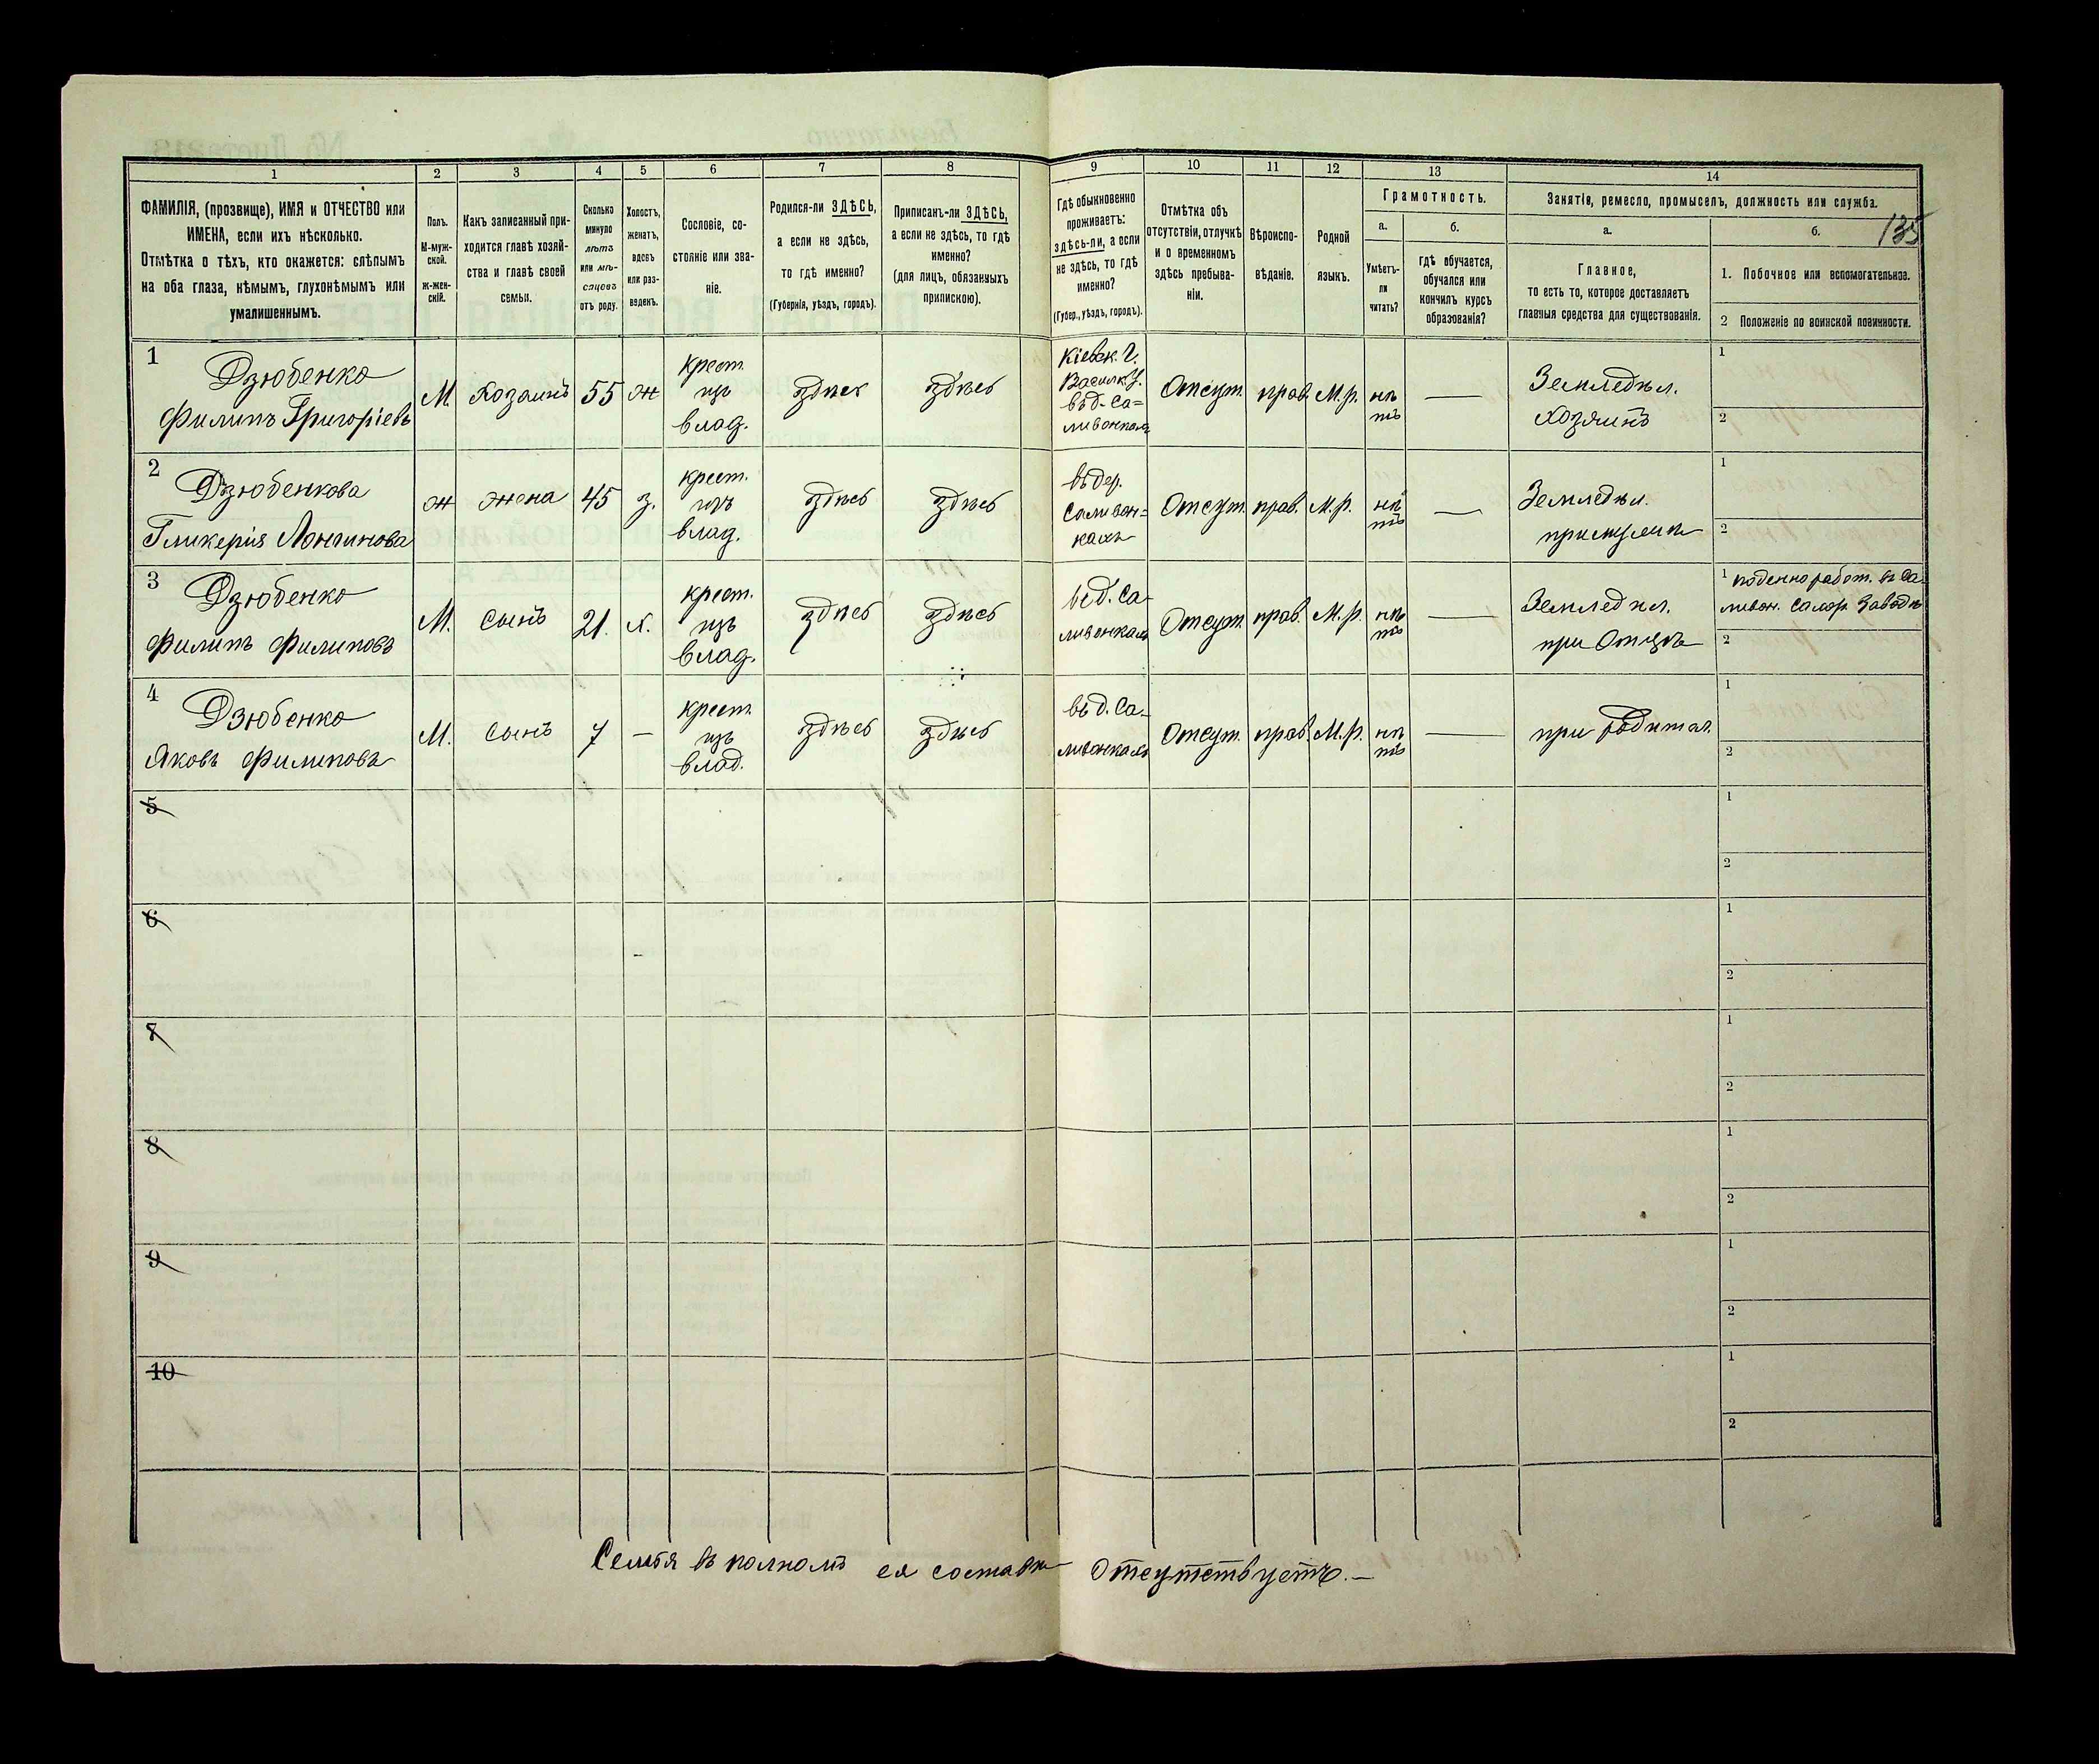 1
2
3
4
5
6
7
8
9
10
11
12
13
14
ФАМИЛІЯ, (прозвище), ИМЯ и ОТЧЕСТВО или
ИМЕНА, если ихъ нѣсколько.
Отмѣтка о тѣхъ, кто окажется: слѣпымъ
на оба глаза, нѣмымъ, глухонѣмымъ или
умалишеннымъ.
Полъ.
М-муж-
ской.
Ж-жен-
скій.
Какъ записанный при-
ходится главѣ хозяй-
ства и главѣ своей
семьи.
Сколько
минуло
лѣтъ
или мѣ-
сяцевъ
отъ роду.
Холостъ,
женатъ,
вдовъ
или раз-
веденъ.
Сословіе, со-
стояніе или зва-
ніе.
Родился-ли ЗДѢСЬ,
а если не здѣсь,
то гдѣ именно?
(Губернія, уѣздъ, городъ).
Приписанъ-ли ЗДѢСЬ,
а если не здѣсь, то гдѣ
именно?
(для лицъ, обязанныхъ
припискою).
Гдѣ обыкновенно
проживаетъ:
здѣсь-ли, а если
не здѣсь, то гдѣ
именно?
(Губер., уѣздъ, городъ).
Отмѣтка объ
отсутствіи, отлучкѣ
и о временномъ
здѣсь пребыва-
ніи.
Вѣроиспо-
вѣданіе.
Родной
языкъ.
Грамотность.
а.
Умѣетъ-
ли
читать?
б.
гдѣ обучается,
обучался или
кончилъ курсъ
образованія?
Занятіе, ремесло, промыселъ, должность или служба.
а.
Главное,
то есть то, которое доставляетъ
главныя средства для существованія.
б.
135
1. Побочное или вспомогательное.
2 Положеніе по воинской повинности.
1
Дзюбенко
Филипъ Григоріевъ
М.
Хозаинъ
55
ж
крест.
изъ
влад.
здѣсь
здѣсь
Кіевск. Г.
Васильк. У.
въ д. Са=
ливонкахъ
Отсут.
прав.
М.р.
нѣ
тъ
—
Земледѣл.
хозяинъ
1
2
2
Дзюбенкова
Гликерія Лонгинова
ж
жена
45
з.
крест.
изъ
влад.
здѣсь
здѣсь
въ дер.
Саливон=
кахъ
Отсут.
прав.
М.р.
нѣ
тъ
—
Земледѣл.
при мужѣ
1
2
3
Дзюбенко
Филипъ Филиповъ
М.
сынъ
21.
х.
крест.
изъ
влад.
здѣсь
здѣсь
въ д. Са-
ливонкахъ
Отсут.
прав.
М.р.
нѣ
тъ
—
Земледѣл.
при Отцѣ
1 поденно работ. въ Са-
ливон. Сахар. Заводѣ
2
4
Дзюбенко
Яковъ Филиповъ
М.
сынъ
7
—
крест.
изъ
влад.
здѣсь
здѣсь
въ д. Са-
ливонкахъ
Отсут.
прав.
М.р.
нѣ
тъ
—
при родител.
1
2
5
1
2
6
1
2
7
1
2
8
1
2
9
1
2
10
1
2
Семья въ полномъ ея составѣ отсутствуетъ.—